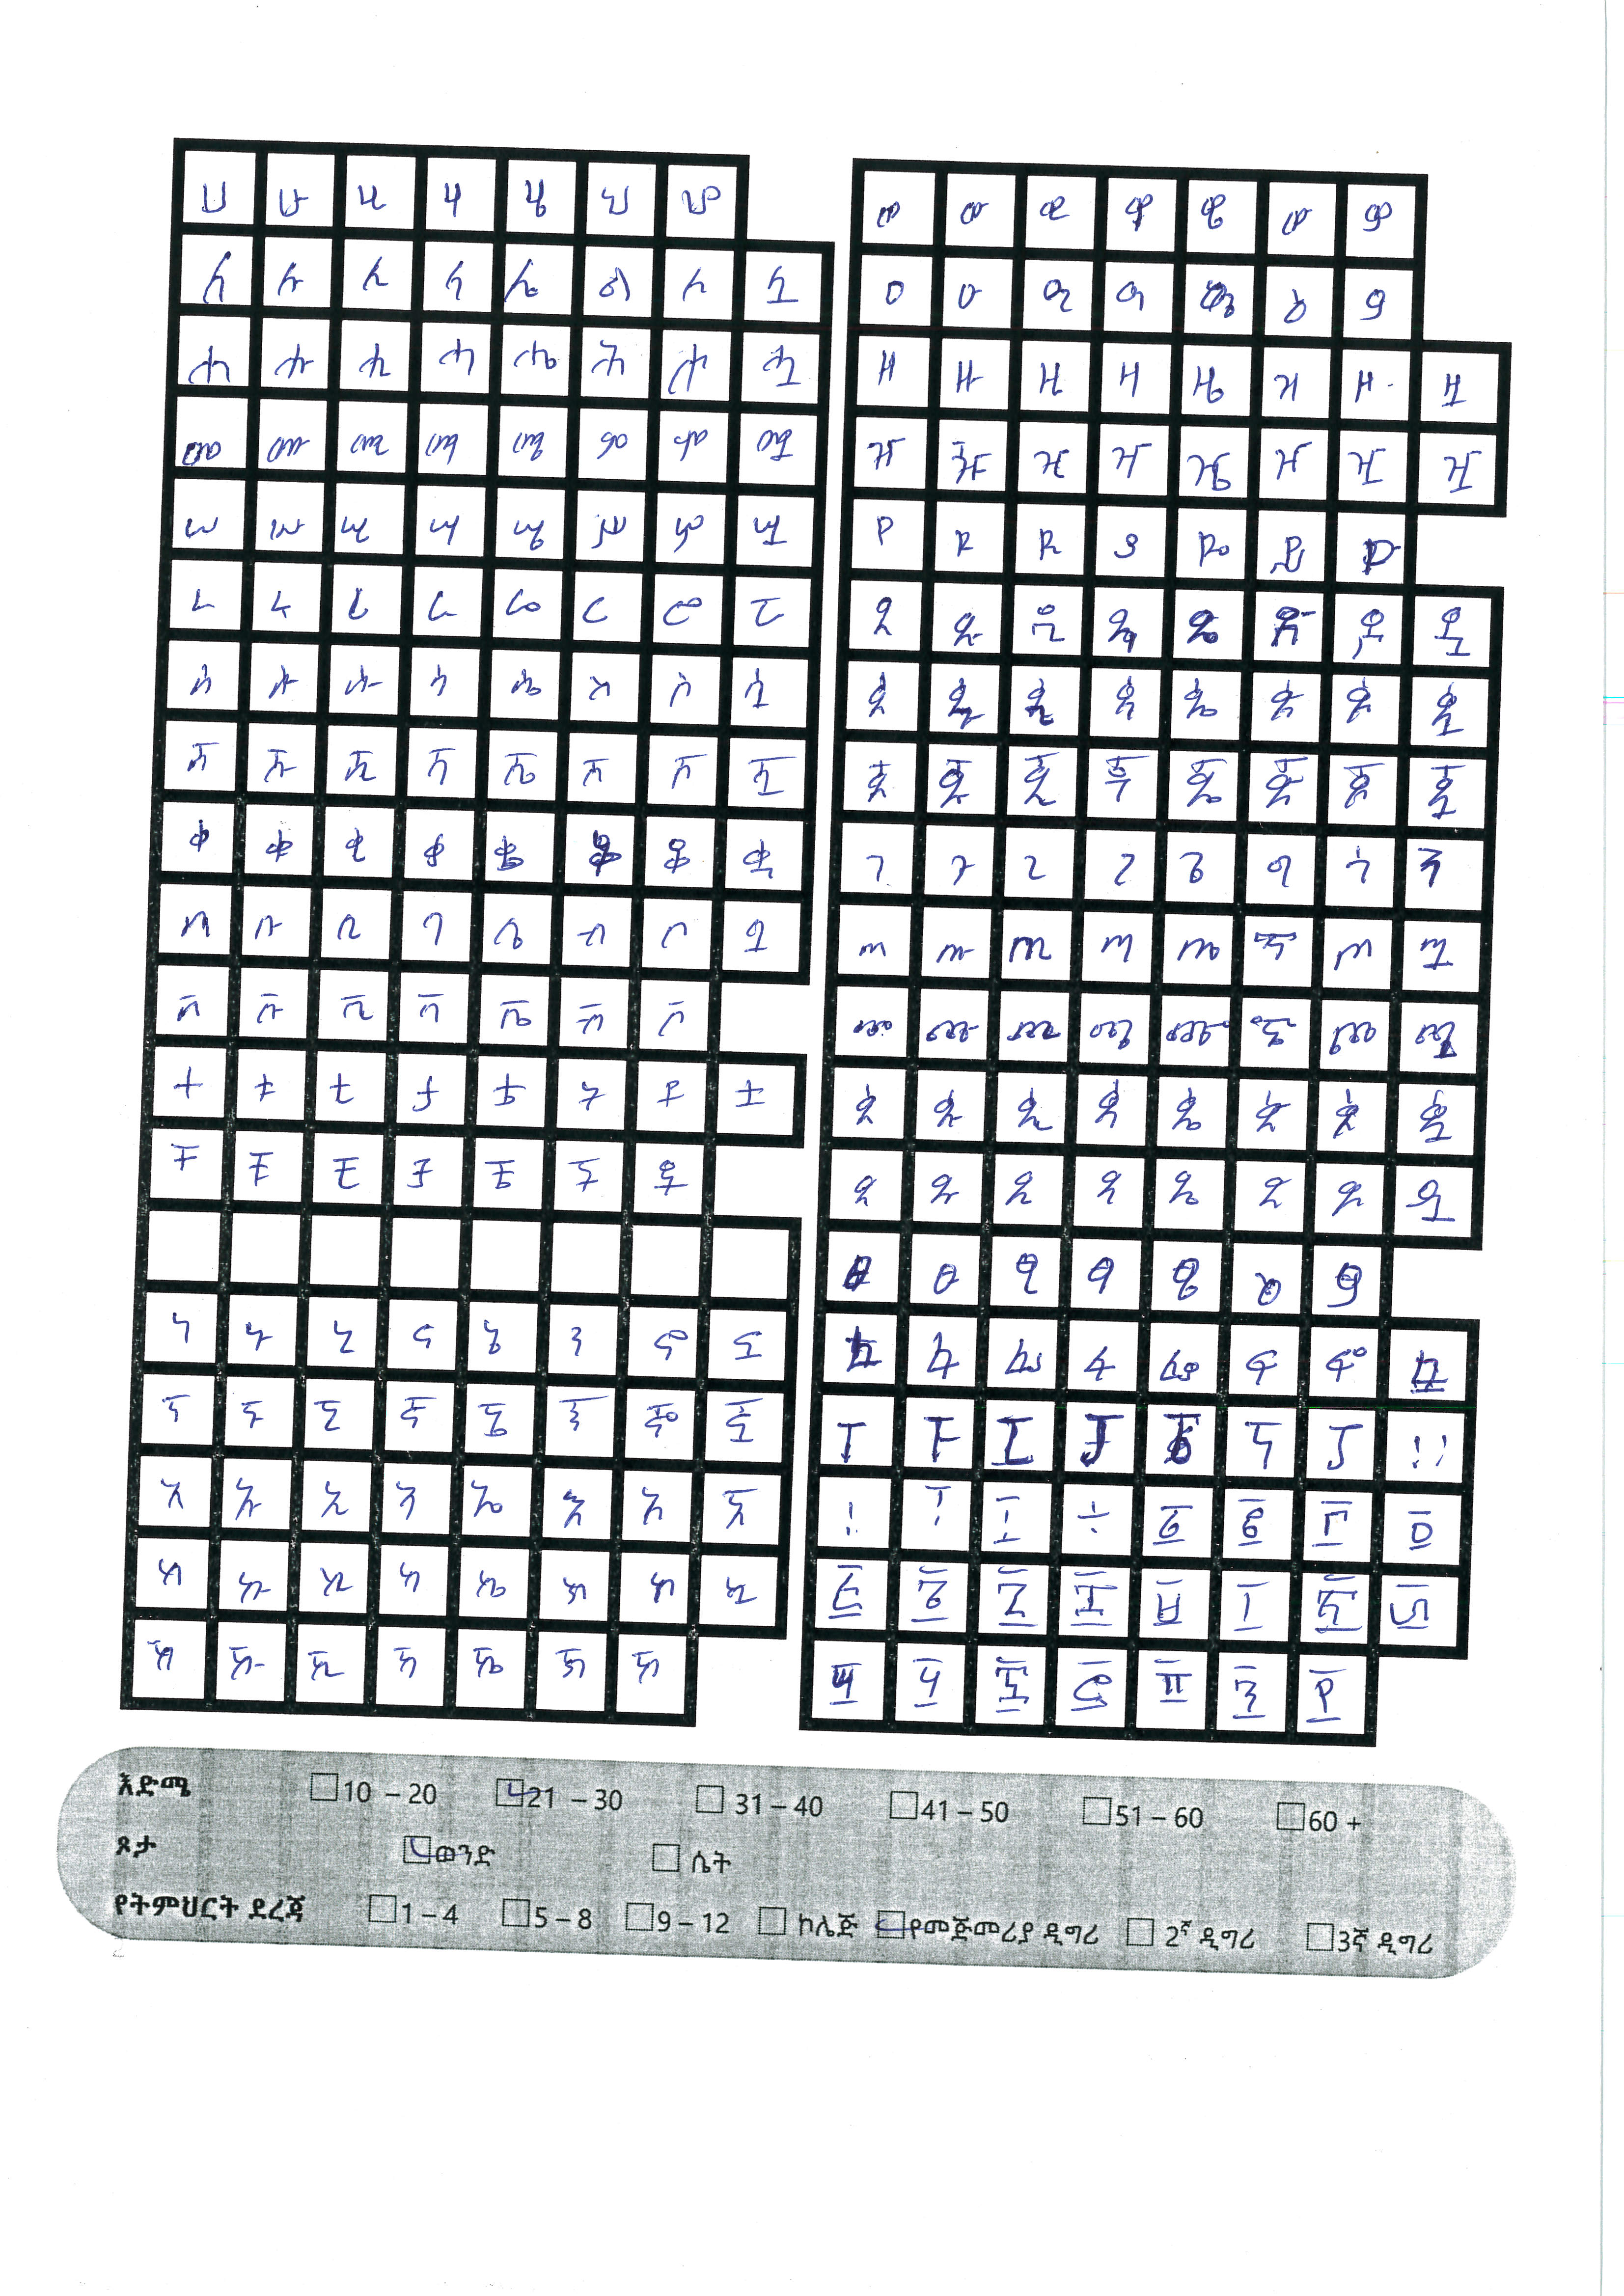 ሀ ሁ ሂ ሃ ሄ ህ ሆ
ለ ሉ ሊ ላ ሌ ል ሎ ሏ
ሐ ሑ ሒ ሓ ሔ ሕ ሖ ሗ
መ ሙ ሚ ማ ሜ ም ሞ ሟ
ሠ ሡ ሢ ሣ ሤ ሥ ሦ ሧ
ረ ሩ ሪ ራ ሬ ር ሮ ሯ
ሰ ሱ ሲ ሳ ሴ ስ ሶ ሷ
ሸ ሹ ሺ ሻ ሼ ሽ ሾ ሿ
ቀ ቁ ቂ ቃ ቄ ቅ ቆ ቋ
በ ቡ ቢ ባ ቤ ብ ቦ ቧ
ቨ ቩ ቪ ቫ ቬ ቭ ቮ
ተ ቱ ቲ ታ ቴ ት ቶ ቷ
ቸ ቹ ቺ ቻ ቼ ች ቾ
ነ ኑ ኒ ና ኔ ን ኖ ኗ
ኘ ኙ ኚ ኛ ኜ ኝ ኞ ኟ
አ ኡ ኢ ኣ ኤ እ ኦ ኧ
ከ ኩ ኪ ካ ኬ ክ ኮ ኳ
ኸ ኹ ኺ ኻ ኼ ኽ ኾ
ወ ዉ ዊ ዋ ዌ ው ዎ
ዐ ዑ ዒ ዓ ዔ ዕ ዖ
ዘ ዙ ዚ ዛ ዜ ዝ ዞ ዟ
ዠ ዡ ዢ ዣ ዤ ዥ ዦ ዧ
የ ዩ ዪ ያ ዬ ይ ዮ
ደ ዱ ዲ ዳ ዴ ድ ዶ ዷ
ጀ ጁ ጂ ጃ ጄ ጅ ጆ ጇ
ገ ጉ ጊ ጋ ጌ ግ ጎ ጓ
ጠ ጡ ጢ ጣ ጤ ጥ ጦ ጧ
ጨ ጩ ጪ ጫ ጬ ጭ ጮ ጯ
ጸ ጹ ጺ ጻ ጼ ጽ ጾ ጿ
ፀ ፁ ፂ ፃ ፄ ፅ ፆ
ፈ ፉ ፊ ፋ ፌ ፍ ፎ ፏ
ፐ ፑ ፒ ፓ ፔ ፕ ፖ !
፩ ፪ ፫ ፬
፭ ፮ ፯ ፰ ፱ ፲ ፳ ፴
፵ ፶ ፷ ፸ ፹ ፺ ፻
እድሜ 10 – 20 21 – 30 31 – 40 41 – 50 51 – 60 60 +
ጾታ ወንድ ሴት
የትምህርት ደረጃ 1 – 4 5 – 8 9 – 12 ኮሌጅ የመጀመሪያ ዲግሪ 2ኛ ዲግሪ 3ኛ ዲግሪ